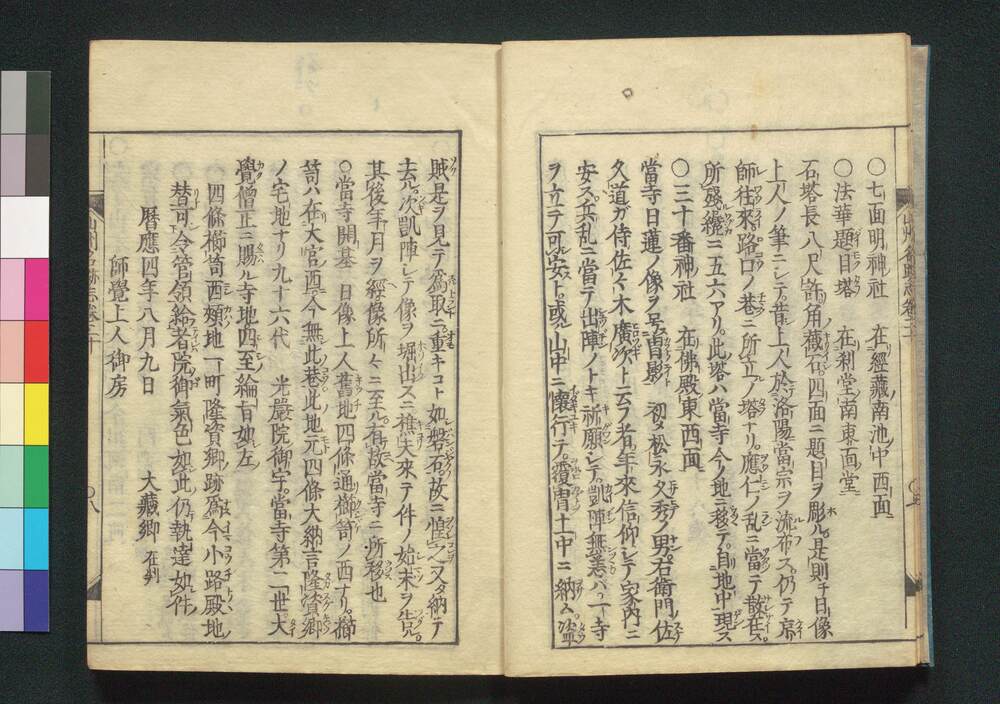 ○七面明神社　在經藏南池ノ中西面
○法華題目塔　在利堂ノ南東面堂
石塔長八尺許角石四面ニ題目ヲ彫ル是則チ日像
上人ノ筆ニシテ昔上人於洛陽當宗ヲ流布ス仍テ京
師往來ノ路口ノ巷ニ所立ノ塔ナリ應仁ノ乱ニ當テ散在ス
所殘纔ニ五六アリ此塔ハ當寺今ノ地ニ移テ自地中現ス
○三十番神ノ社　在佛殿東西面
當寺日蓮ノ像ヲ号冑影　初メ松永久秀ノ男右衛門佐
久道ガ侍佐々木廣次ト云フ者年來信仰シテ家内ニ
安ス兵乱ニ當テ出陣ノトキ祈願シテ凱陣無恙バ一寺
ヲ立テ可安ト或山中ニ懐行テ覆冑土中ニ納ム
賊是ヲ見テ爲取ニ重キコト如磐石故ニ懼之又タ納テ
去ル次凱陣シテ像ヲ堀出スニ樵夫來テ件ノ始末ヲ告ク
其後年月ヲ經像所々ニ至ル有故當寺ニ所移也
○當寺開基　日像上人舊地四條通櫛笥ノ西ナリ櫛
笥ハ在大宮西今無此巷此地元四條大納言隆資卿
ノ宅地ナリ九十六代　光嚴院御宇當寺第二世大
覺僧正ニ賜ル寺地四至綸旨如左
四條櫛笥西頰地一町隆資卿ノ跡爲今小路殿地
替可令管領給者院御氣色如此仍執達如件
暦應四年八月九日　　大藏卿在判
師覺上人御房
山州名跡志卷二十